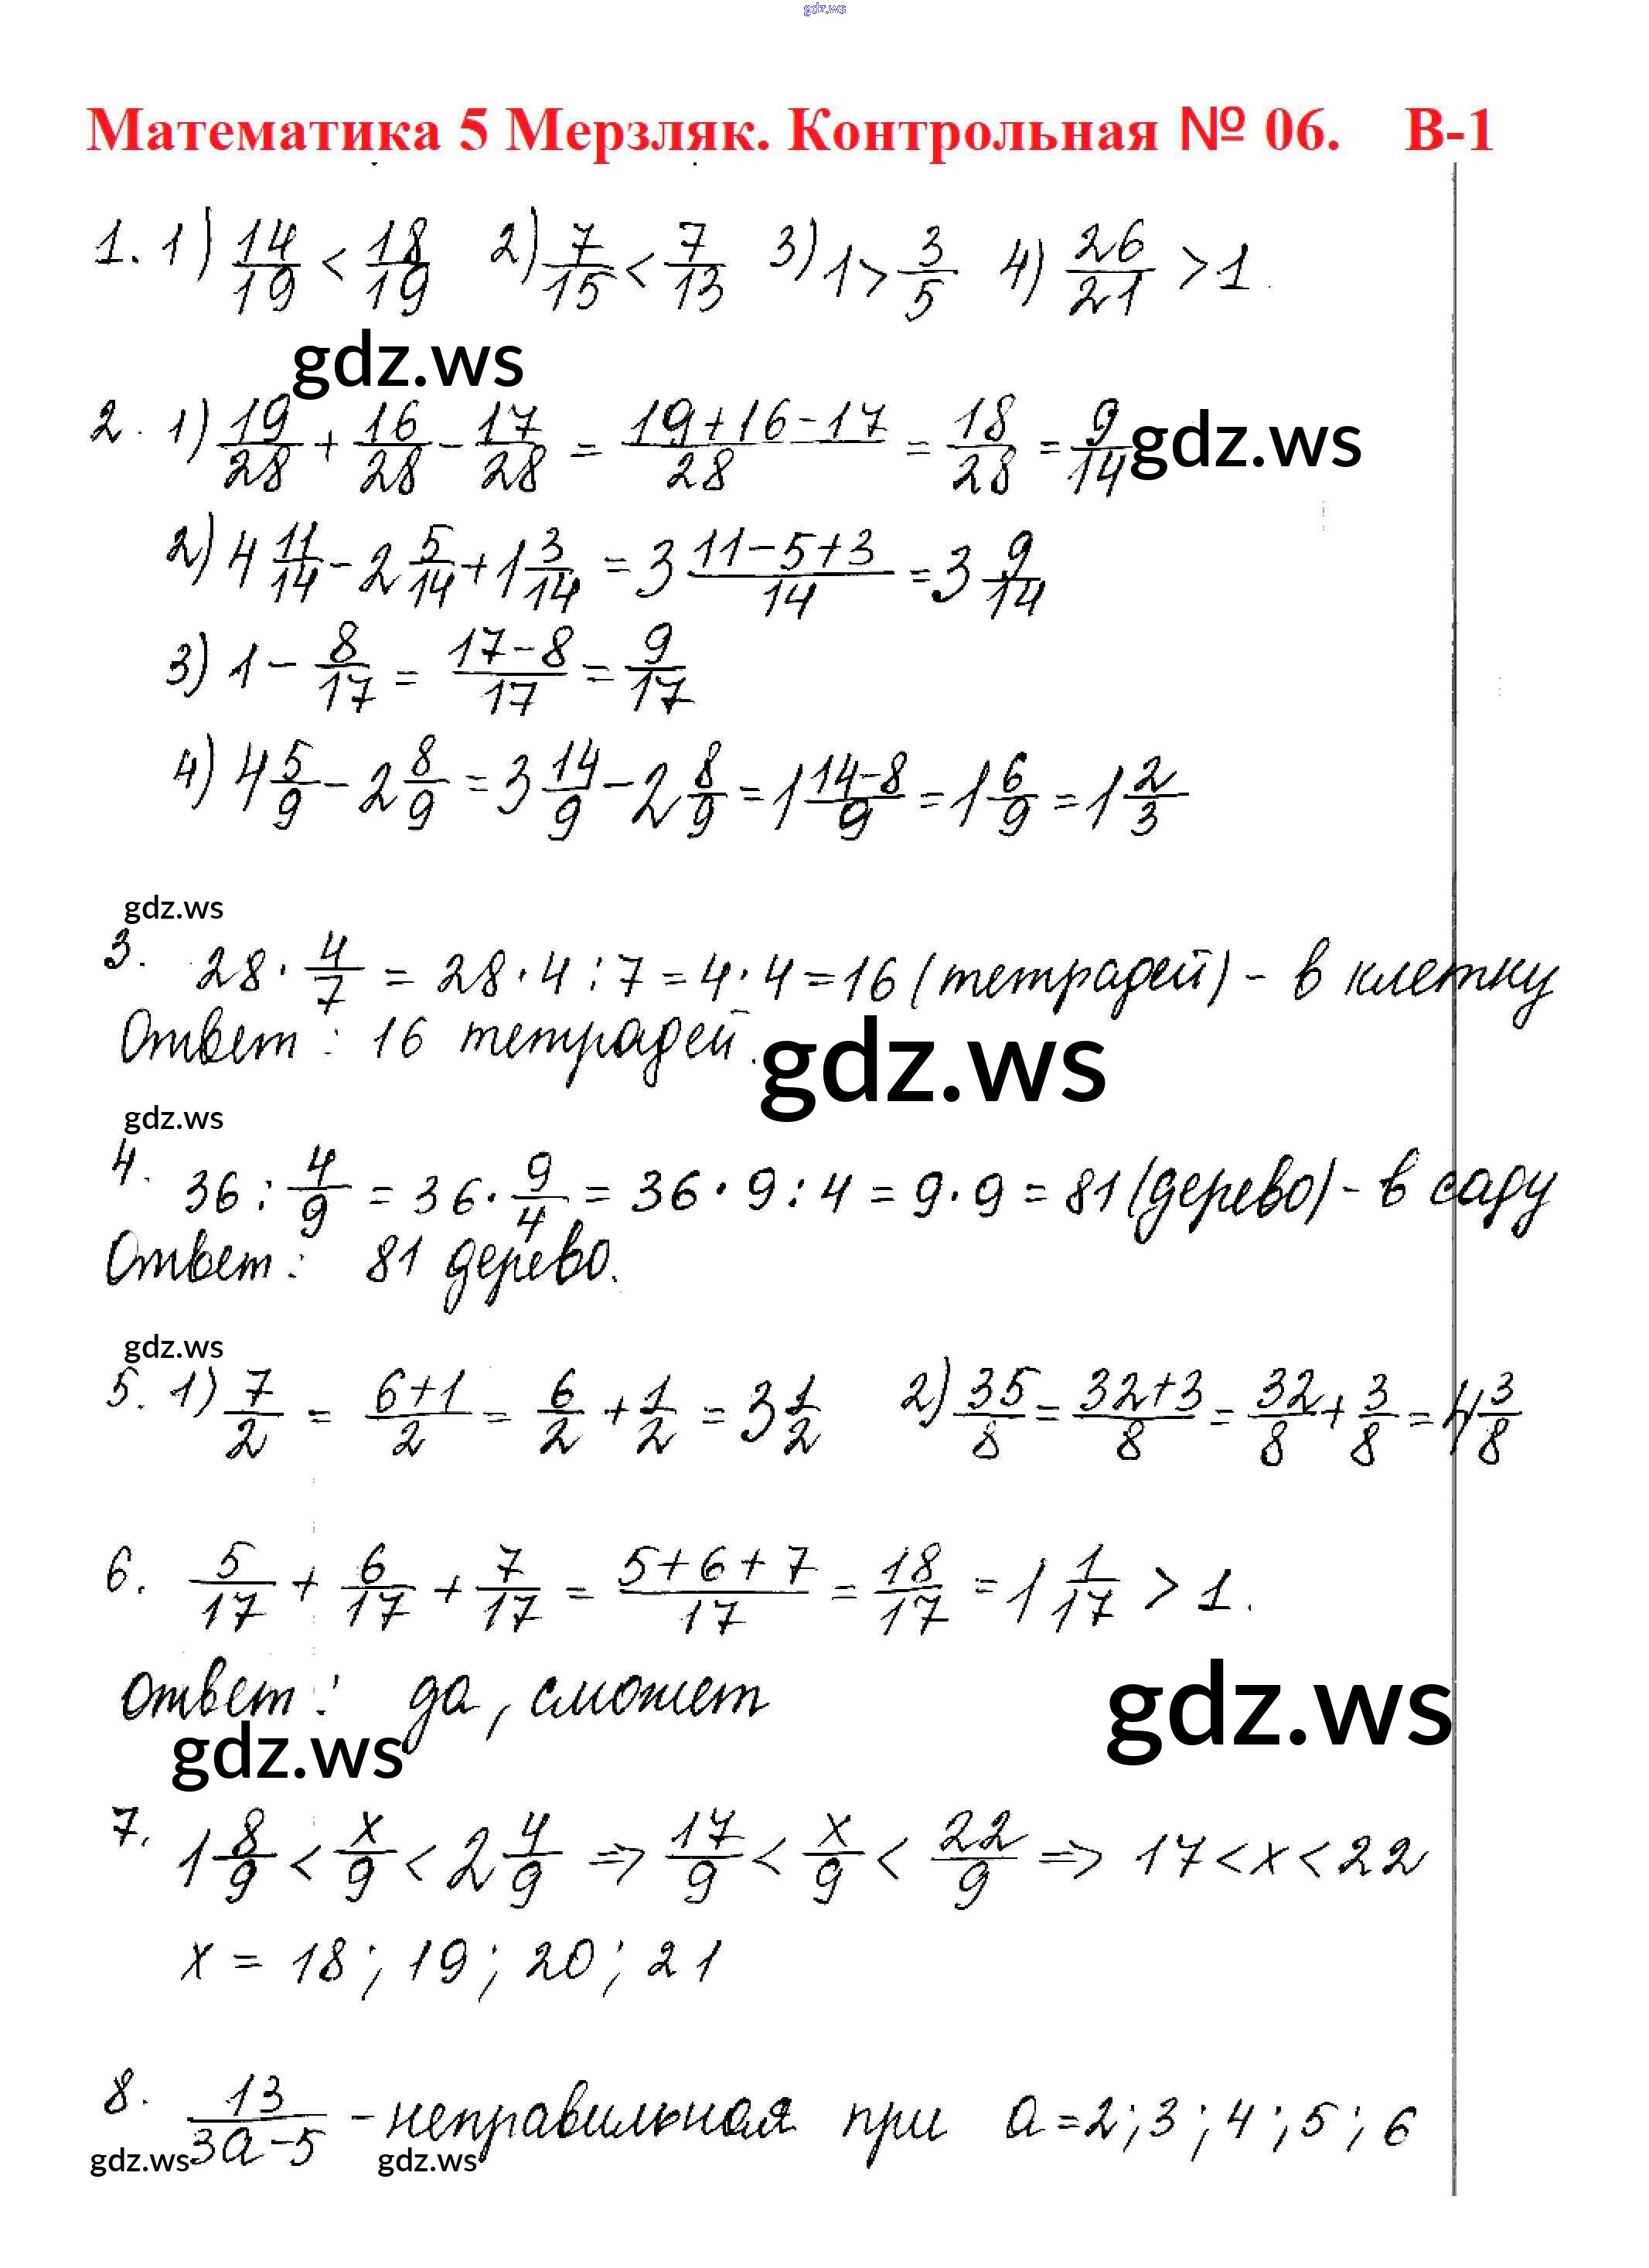 gdz.ws
Математика 5 Мерзляк. Контрольная № 06. В-1
1. 1) 14/19 < 18/19 2) 7/15 < 7/13 3) 1 > 3/5 4) 26/21 > 1
gdz.ws
2. 1) 19/28 + 16/28 - 17/28 = (19+16-17)/28 = 18/28 = 9/14 gdz.ws
2) 4 11/14 - 2 5/14 + 1 3/14 = 3 (11-5+3)/14 = 3 9/14
3) 1 - 8/17 = (17-8)/17 = 9/17
4) 4 5/9 - 2 8/9 = 3 14/9 - 2 8/9 = 1 (14-8)/9 = 1 6/9 = 1 2/3
gdz.ws
3. 28 · 4/7 = 28 · 4 : 7 = 4 · 4 = 16 (тетрадей) - в клетку
Ответ: 16 тетрадей.
gdz.ws
gdz.ws
4. 36 : 4/9 = 36 · 9/4 = 36 · 9 : 4 = 9 · 9 = 81 (дерево) - в саду
Ответ: 81 дерево.
gdz.ws
5. 1) 7/2 = (6+1)/2 = 6/2 + 1/2 = 3 1/2 2) 35/8 = (32+3)/8 = 32/8 + 3/8 = 4 3/8
6. 5/17 + 6/17 + 7/17 = (5+6+7)/17 = 18/17 = 1 1/17 > 1.
Ответ: да, сможет
gdz.ws
gdz.ws
7. 1 8/9 < x/9 < 2 4/9 => 17/9 < x/9 < 22/9 => 17 < x < 22
x = 18; 19; 20; 21
8. 13/(3a-5) - неправильная при a = 2; 3; 4; 5; 6
gdz.ws gdz.ws